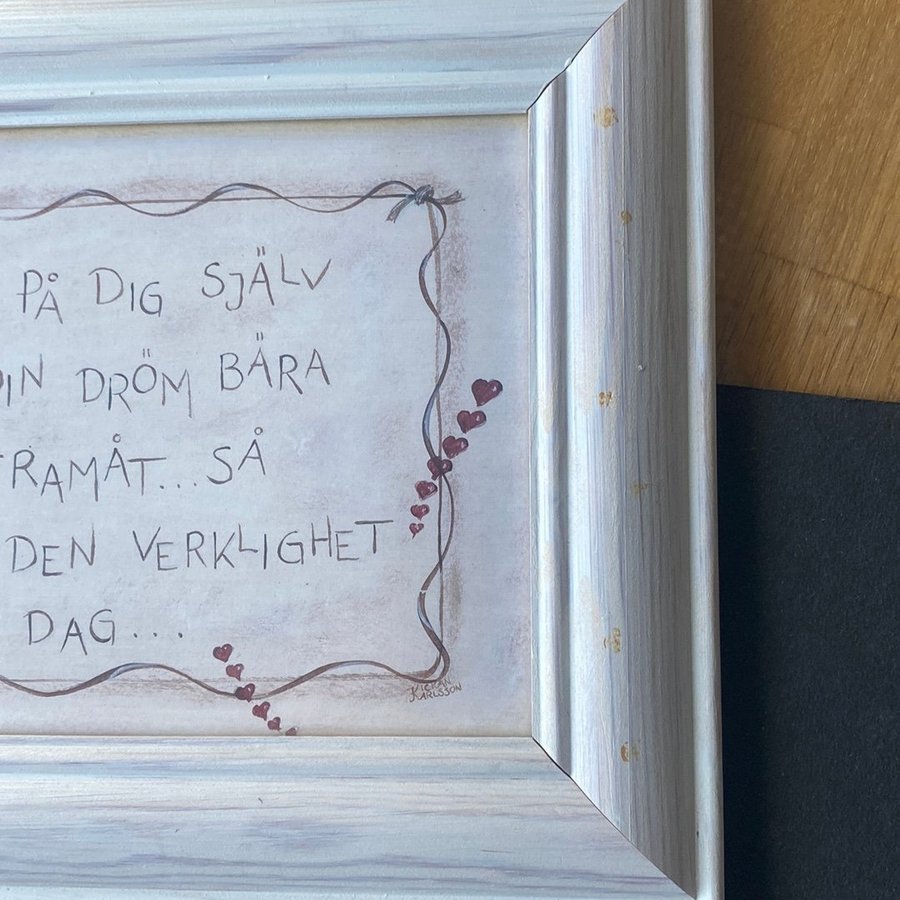 PÅ DIG SJÄLV
DIN DRÖM BÄRA
FRAMÅT...SÅ
DEN VERKLIGHET
DAG...
KICKAN
KARLSSON